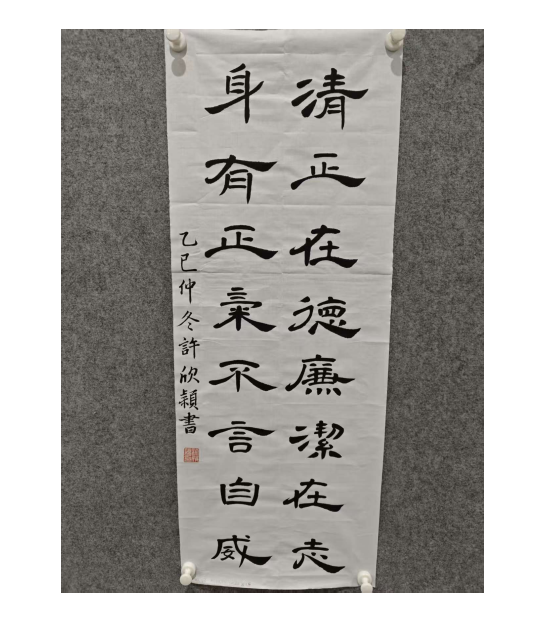 清正在德廉潔在志
身有正氣不言自威
乙巳仲冬許欣穎書